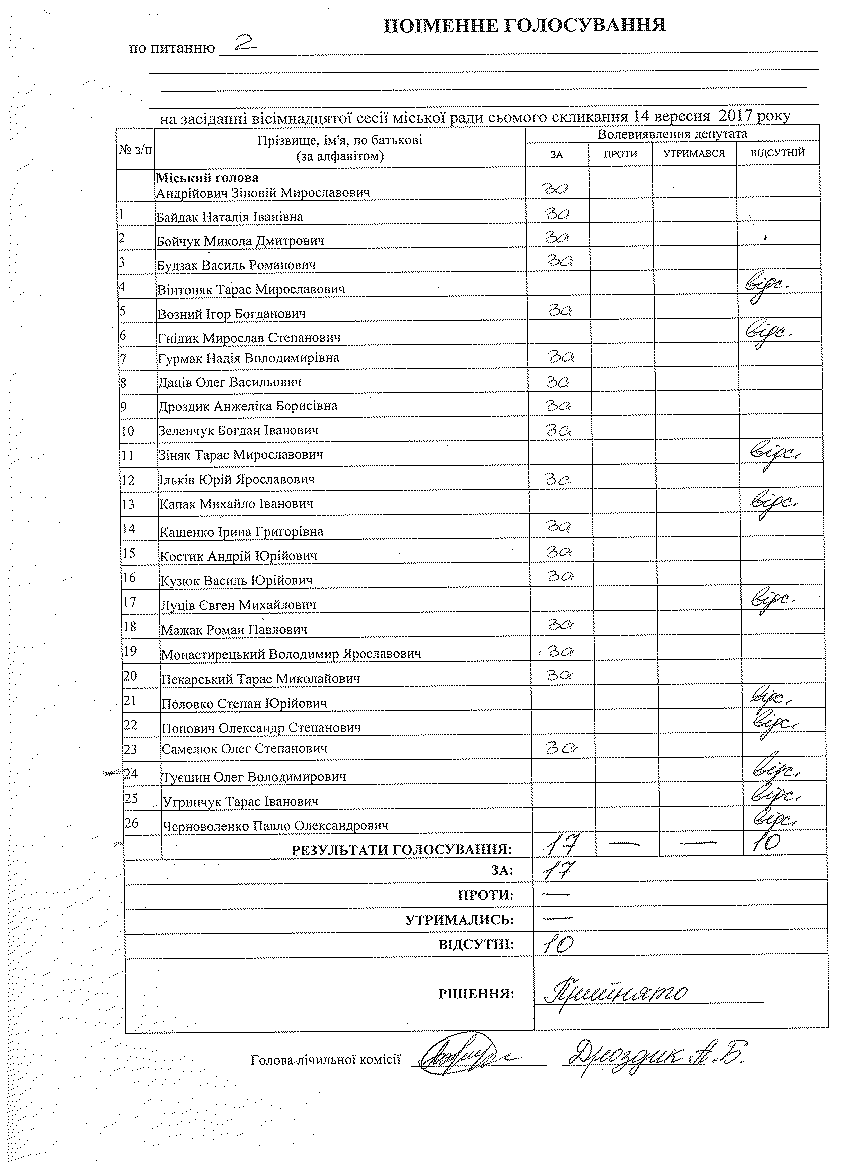 ПОІМЕННЕ ГОЛОСУВАННЯ
по питанню 2
на засіданні вісімнадцятої сесії міської ради сьомого скликання 14 вересня 2017 року
№ з/п Прізвище, ім'я, по батькові (за алфавітом) Волевиявлення депутата
ЗА ПРОТИ УТРИМАВСЯ ВІДСУТНІЙ
Міський голова
Андрійович Зіновій Мирославович за
1 Байдак Наталія Іванівна за
2 Бойчук Микола Дмитрович за
3 Будзак Василь Романович за
4 Вінтоняк Тарас Мирославович відс.
5 Возний Ігор Богданович за
6 Гнідик Мирослав Степанович відс.
7 Гурмак Надія Володимирівна за
8 Даців Олег Васильович за
9 Дроздик Анжеліка Борисівна за
10 Зеленчук Богдан Іванович за
11 Зіняк Тарас Мирославович відс.
12 Ільків Юрій Ярославович за
13 Капак Михайло Іванович відс.
14 Кащенко Ірина Григорівна за
15 Костик Андрій Юрійович за
16 Кузюк Василь Юрійович за
17 Луців Євген Михайлович відс.
18 Мажак Роман Павлович за
19 Монастирецький Володимир Ярославович за
20 Пекарський Тарас Миколайович за
21 Половко Степан Юрійович відс.
22 Попович Олександр Степанович відс.
23 Самелюк Олег Степанович за
24 Туєшин Олег Володимирович відс.
25 Угринчук Тарас Іванович відс.
26 Черноволенко Павло Олександрович відс.
РЕЗУЛЬТАТИ ГОЛОСУВАННЯ: 17 — — 10
ЗА: 17
ПРОТИ: —
УТРИМАЛИСЬ: —
ВІДСУТНІ: 10
РІШЕННЯ: Прийнято
Голова лічильної комісії Дроздик А.Б.